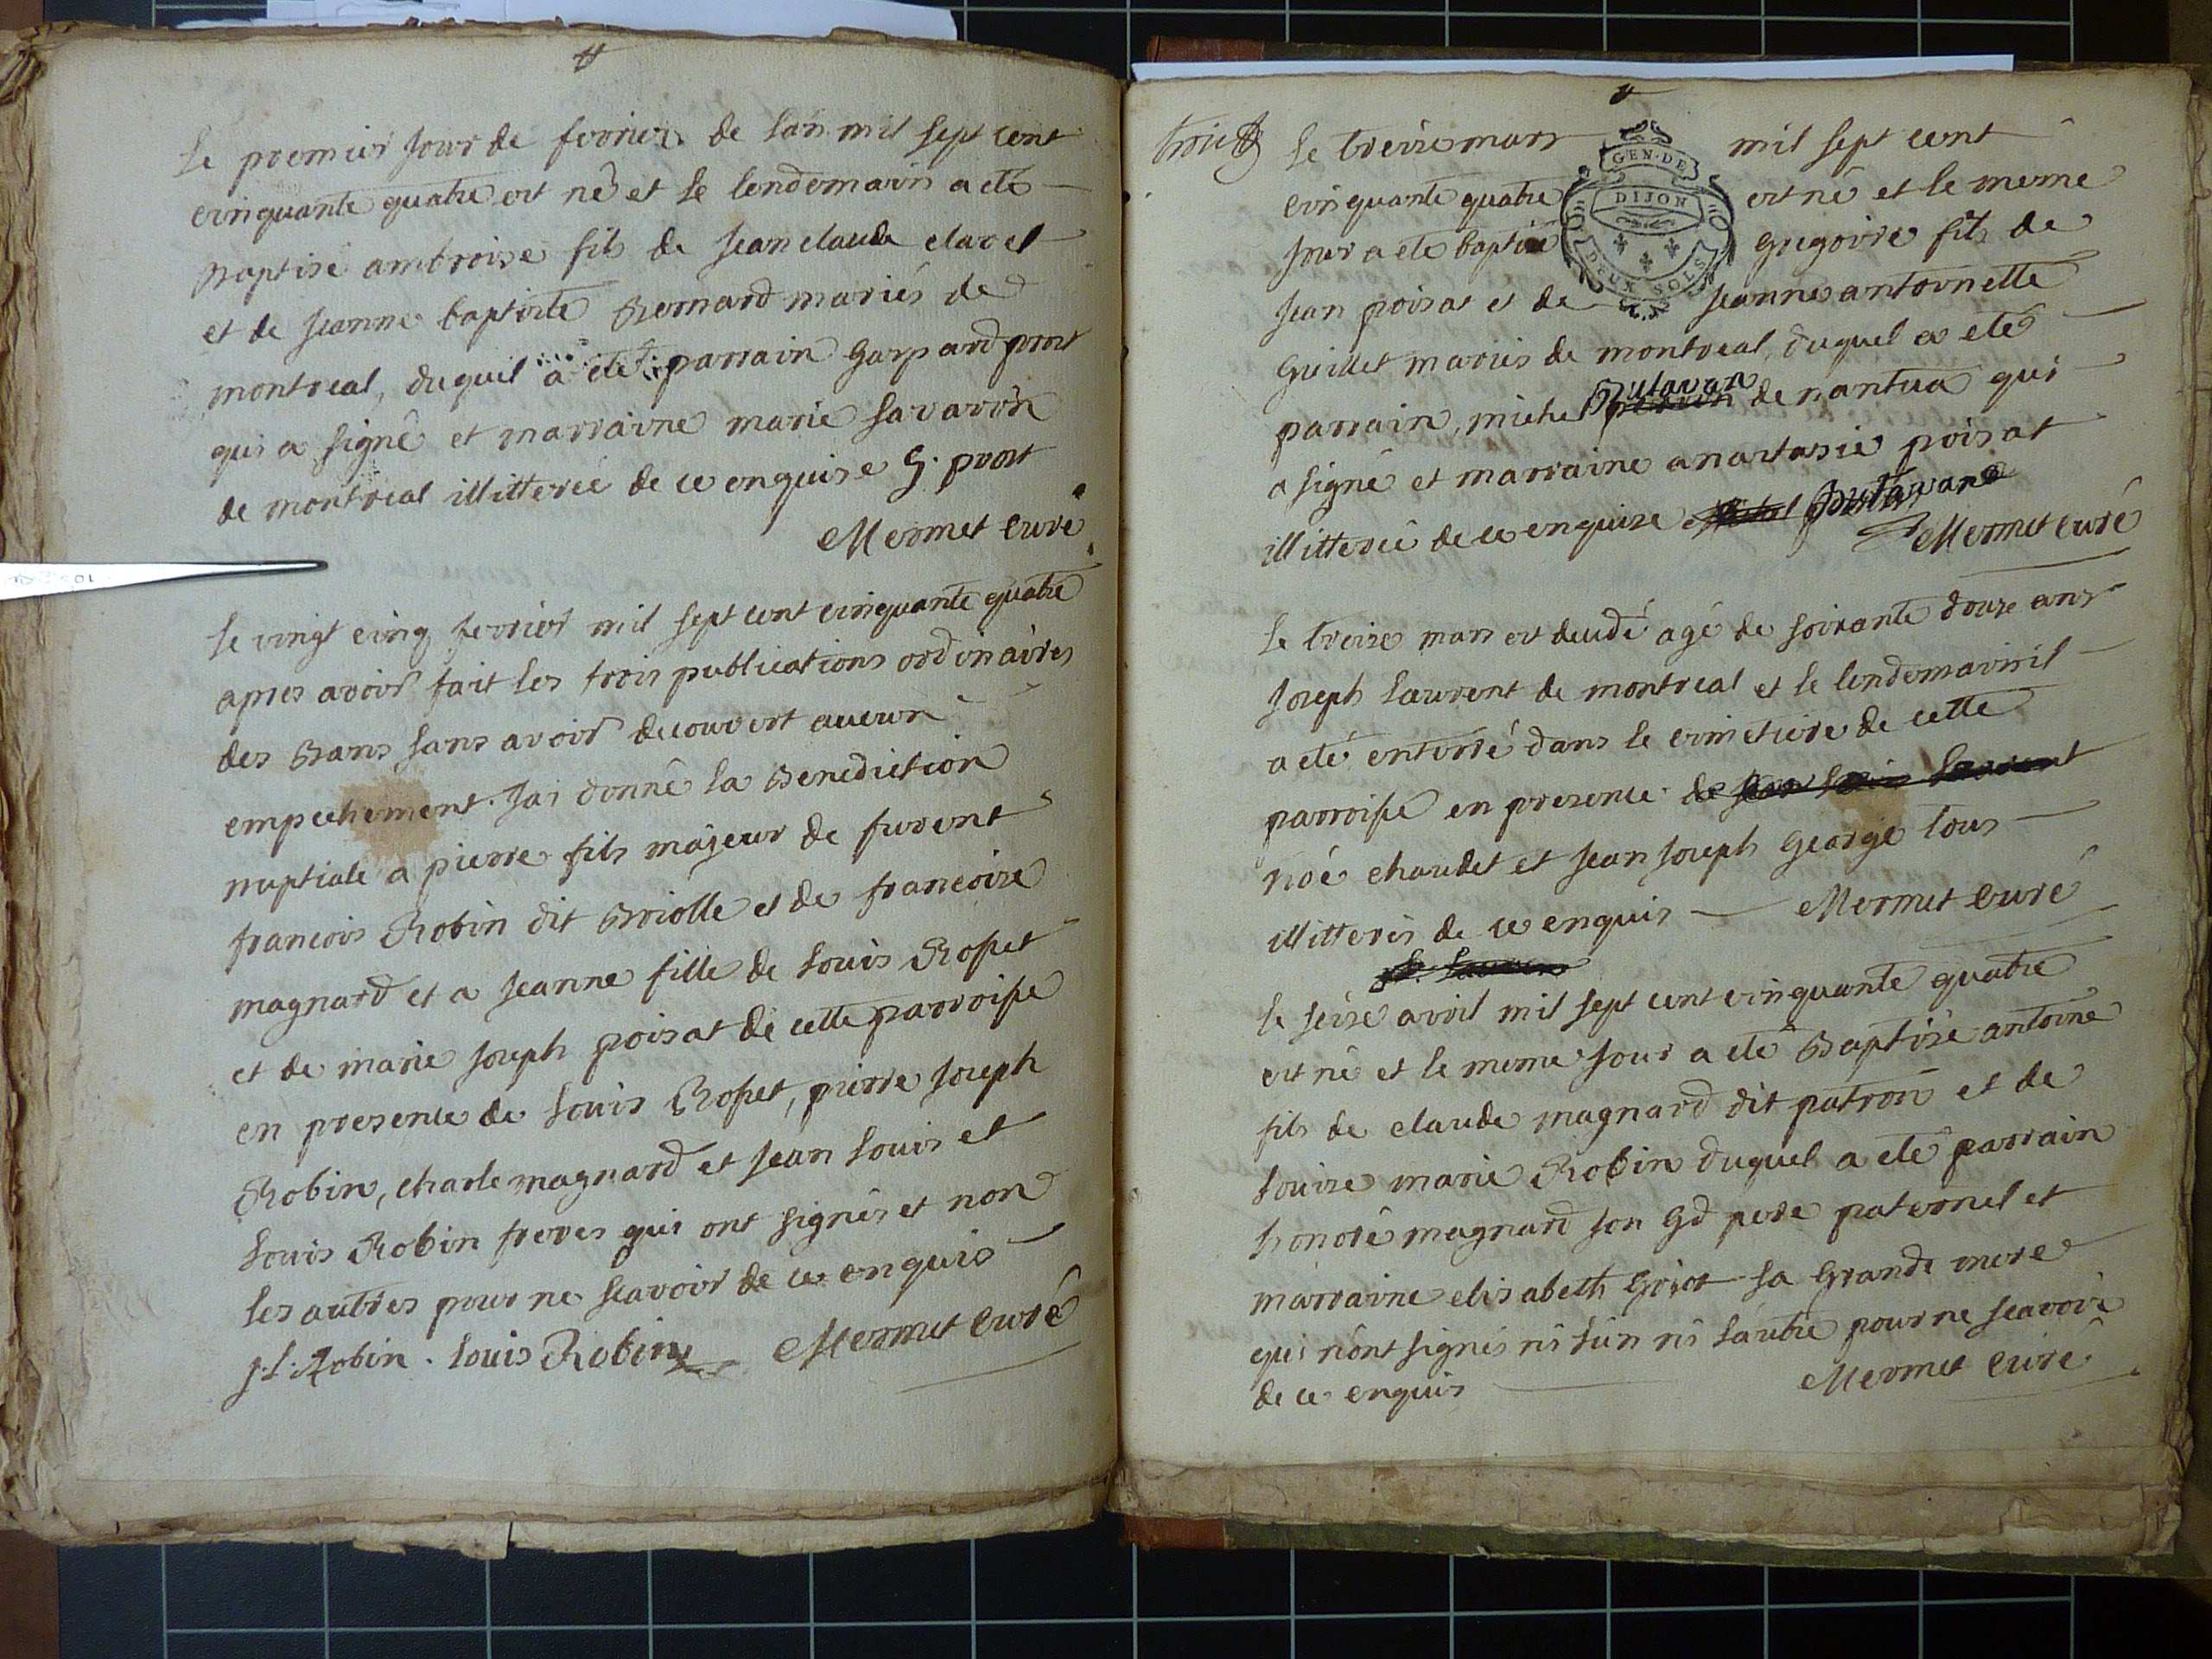 Le premier Jour de fevrier de lan mil sept cent
cinquante quatre est né et le lendemain a eté
Baptisé ambroise fils de Jean claude clavel
et de Jeanne baptiste Bernard mariés de
montreal, duquel a eté parrain Gaspard prost
qui a signé et marraine marie savarin
de montreal illitteree de ce enquise G. prost
Mermet curé
Le vingt cinq fevrier mil sept cent cinquante quatre
apres avoir fait les trois publications ordinaires
des Bans sans avoir decouvert aucun
empechement. Jai donné la Benediction
nuptiale a pierre fils majeur de furent
francois Robin dit Briolle et de francoise
magnard et a Jeanne fille de Louis Rosset
et de marie Joseph poisat de cette parroisse
en presence de Louis Rosset, pierre Joseph
Robin, charle magnard et Jean Louis et
Louis Robin freres qui ont signés et non
les autres pour ne scavoir de ce enquis
J. L. Robin. Louis Robin Mermet curé
Le treize mars mil sept cent
GEN. DE
DIJON
DEUX SOLS
cinquante quatre est né et le meme
Jour a eté baptisé Gregoire fils de
Jean poisat et de Jeanne antoinette
Guillet mariés de montreal, duquel a eté
Butavan
parrain, michel de nantua qui
a signé et marraine anastasie poisat
illitteree de ce enquise Butavand
Mermet curé
Le treize mars est decedé agé de soixante douze ans
Joseph Laurent de montreal et le lendemain il
a eté enterré dans le cimetiere de cette
parroisse en presence de
noé chaudet et Jean Joseph George tous
illitterés de ce enquis Mermet curé
Le seize avril mil sept cent cinquante quatre
est né et le meme Jour a eté Baptisé antoine
fils de claude magnard dit patron et de
Louise marie Robin duquel a eté parrain
honoré magnard son Gd pere paternel et
marraine elisabeth sa Grande mere
qui nont signés ni lun ni lautre pour ne scavoir
de ce enquis Mermet curé